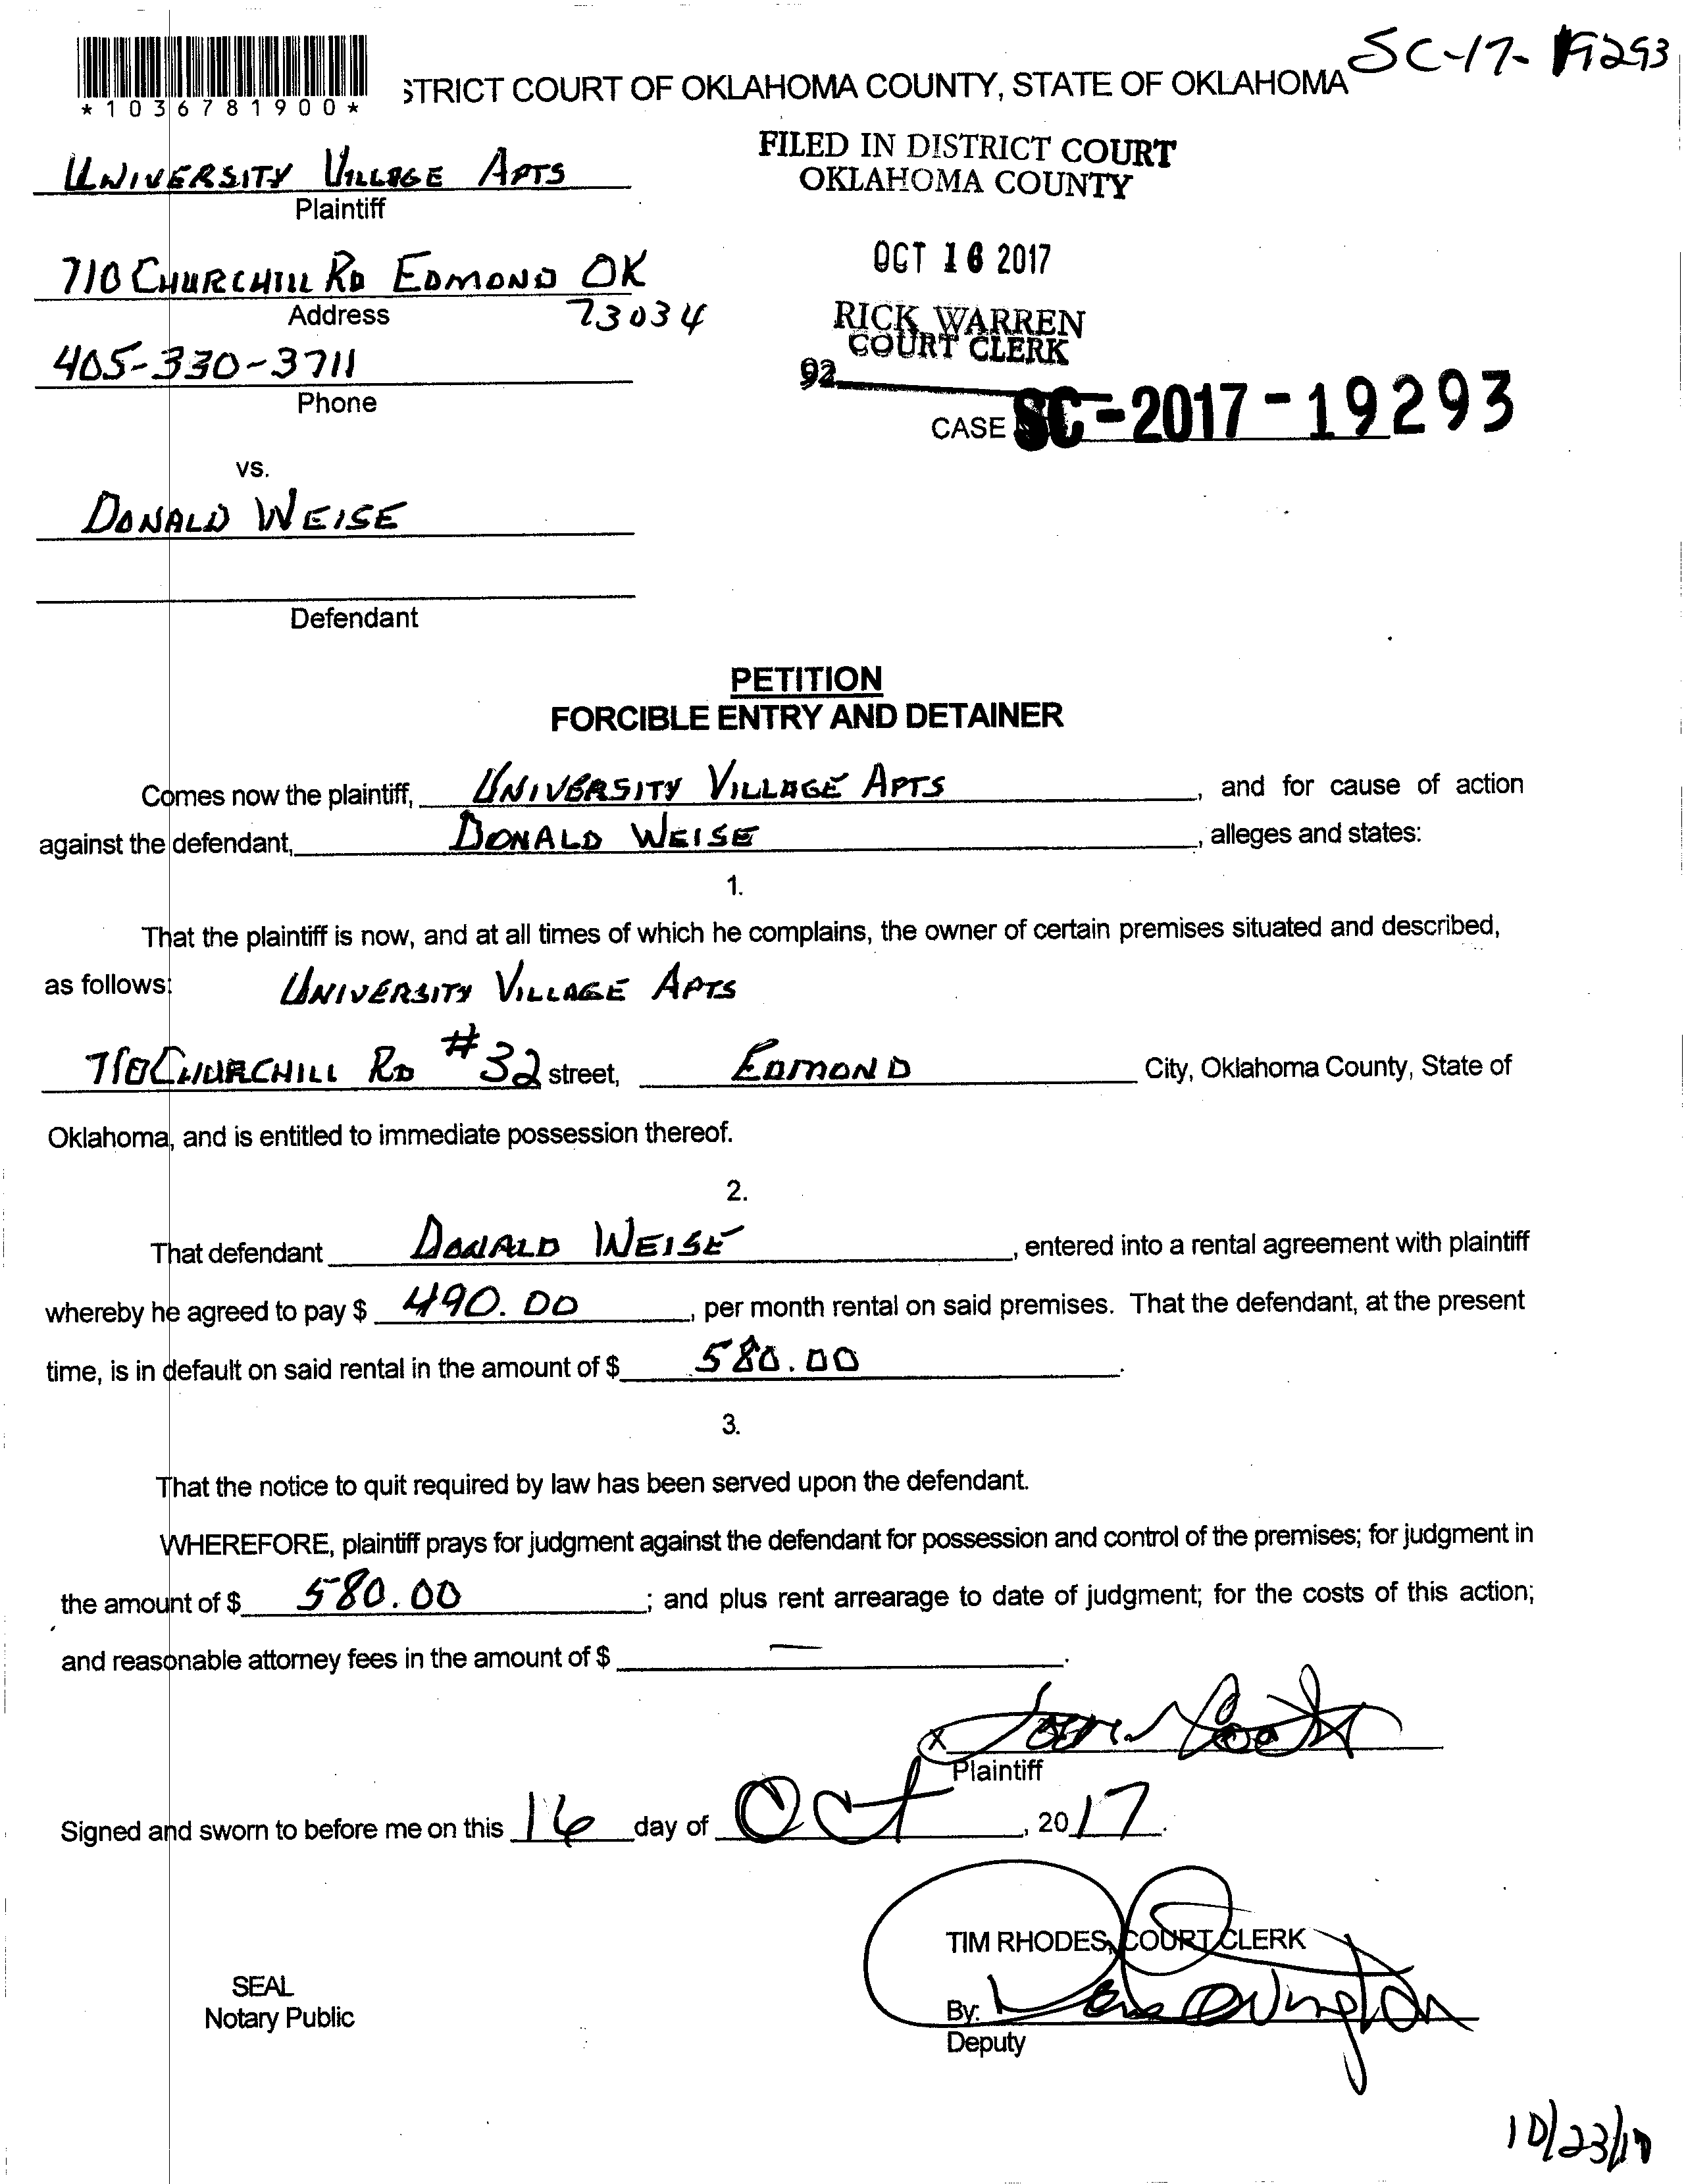 SC-17-19293
*1036781900*
STRICT COURT OF OKLAHOMA COUNTY, STATE OF OKLAHOMA
UNIVERSITY VILLAGE APTS
Plaintiff
FILED IN DISTRICT COURT
OKLAHOMA COUNTY
710 CHURCHILL RD EDMOND OK
73034
Address
OCT 16 2017
405-330-3711
Phone
RICK WARREN
COURT CLERK
92
CASE SC-2017-19293
vs.
DONALD WEISE
Defendant
PETITION
FORCIBLE ENTRY AND DETAINER
Comes now the plaintiff, UNIVERSITY VILLAGE APTS, and for cause of action
against the defendant, DONALD WEISE, alleges and states:
1.
That the plaintiff is now, and at all times of which he complains, the owner of certain premises situated and described,
as follows: UNIVERSITY VILLAGE APTS
710 CHURCHILL RD #32 street, EDMOND City, Oklahoma County, State of
Oklahoma, and is entitled to immediate possession thereof.
2.
That defendant DONALD WEISE, entered into a rental agreement with plaintiff
whereby he agreed to pay $ 490.00, per month rental on said premises. That the defendant, at the present
time, is in default on said rental in the amount of $ 580.00.
3.
That the notice to quit required by law has been served upon the defendant.
WHEREFORE, plaintiff prays for judgment against the defendant for possession and control of the premises; for judgment in
the amount of $ 580.00; and plus rent arrearage to date of judgment; for the costs of this action;
and reasonable attorney fees in the amount of $ —.
X
Plaintiff
Signed and sworn to before me on this 16 day of Oct, 2017.
TIM RHODES, COURT CLERK
SEAL
Notary Public
By:
Deputy
10/23/17